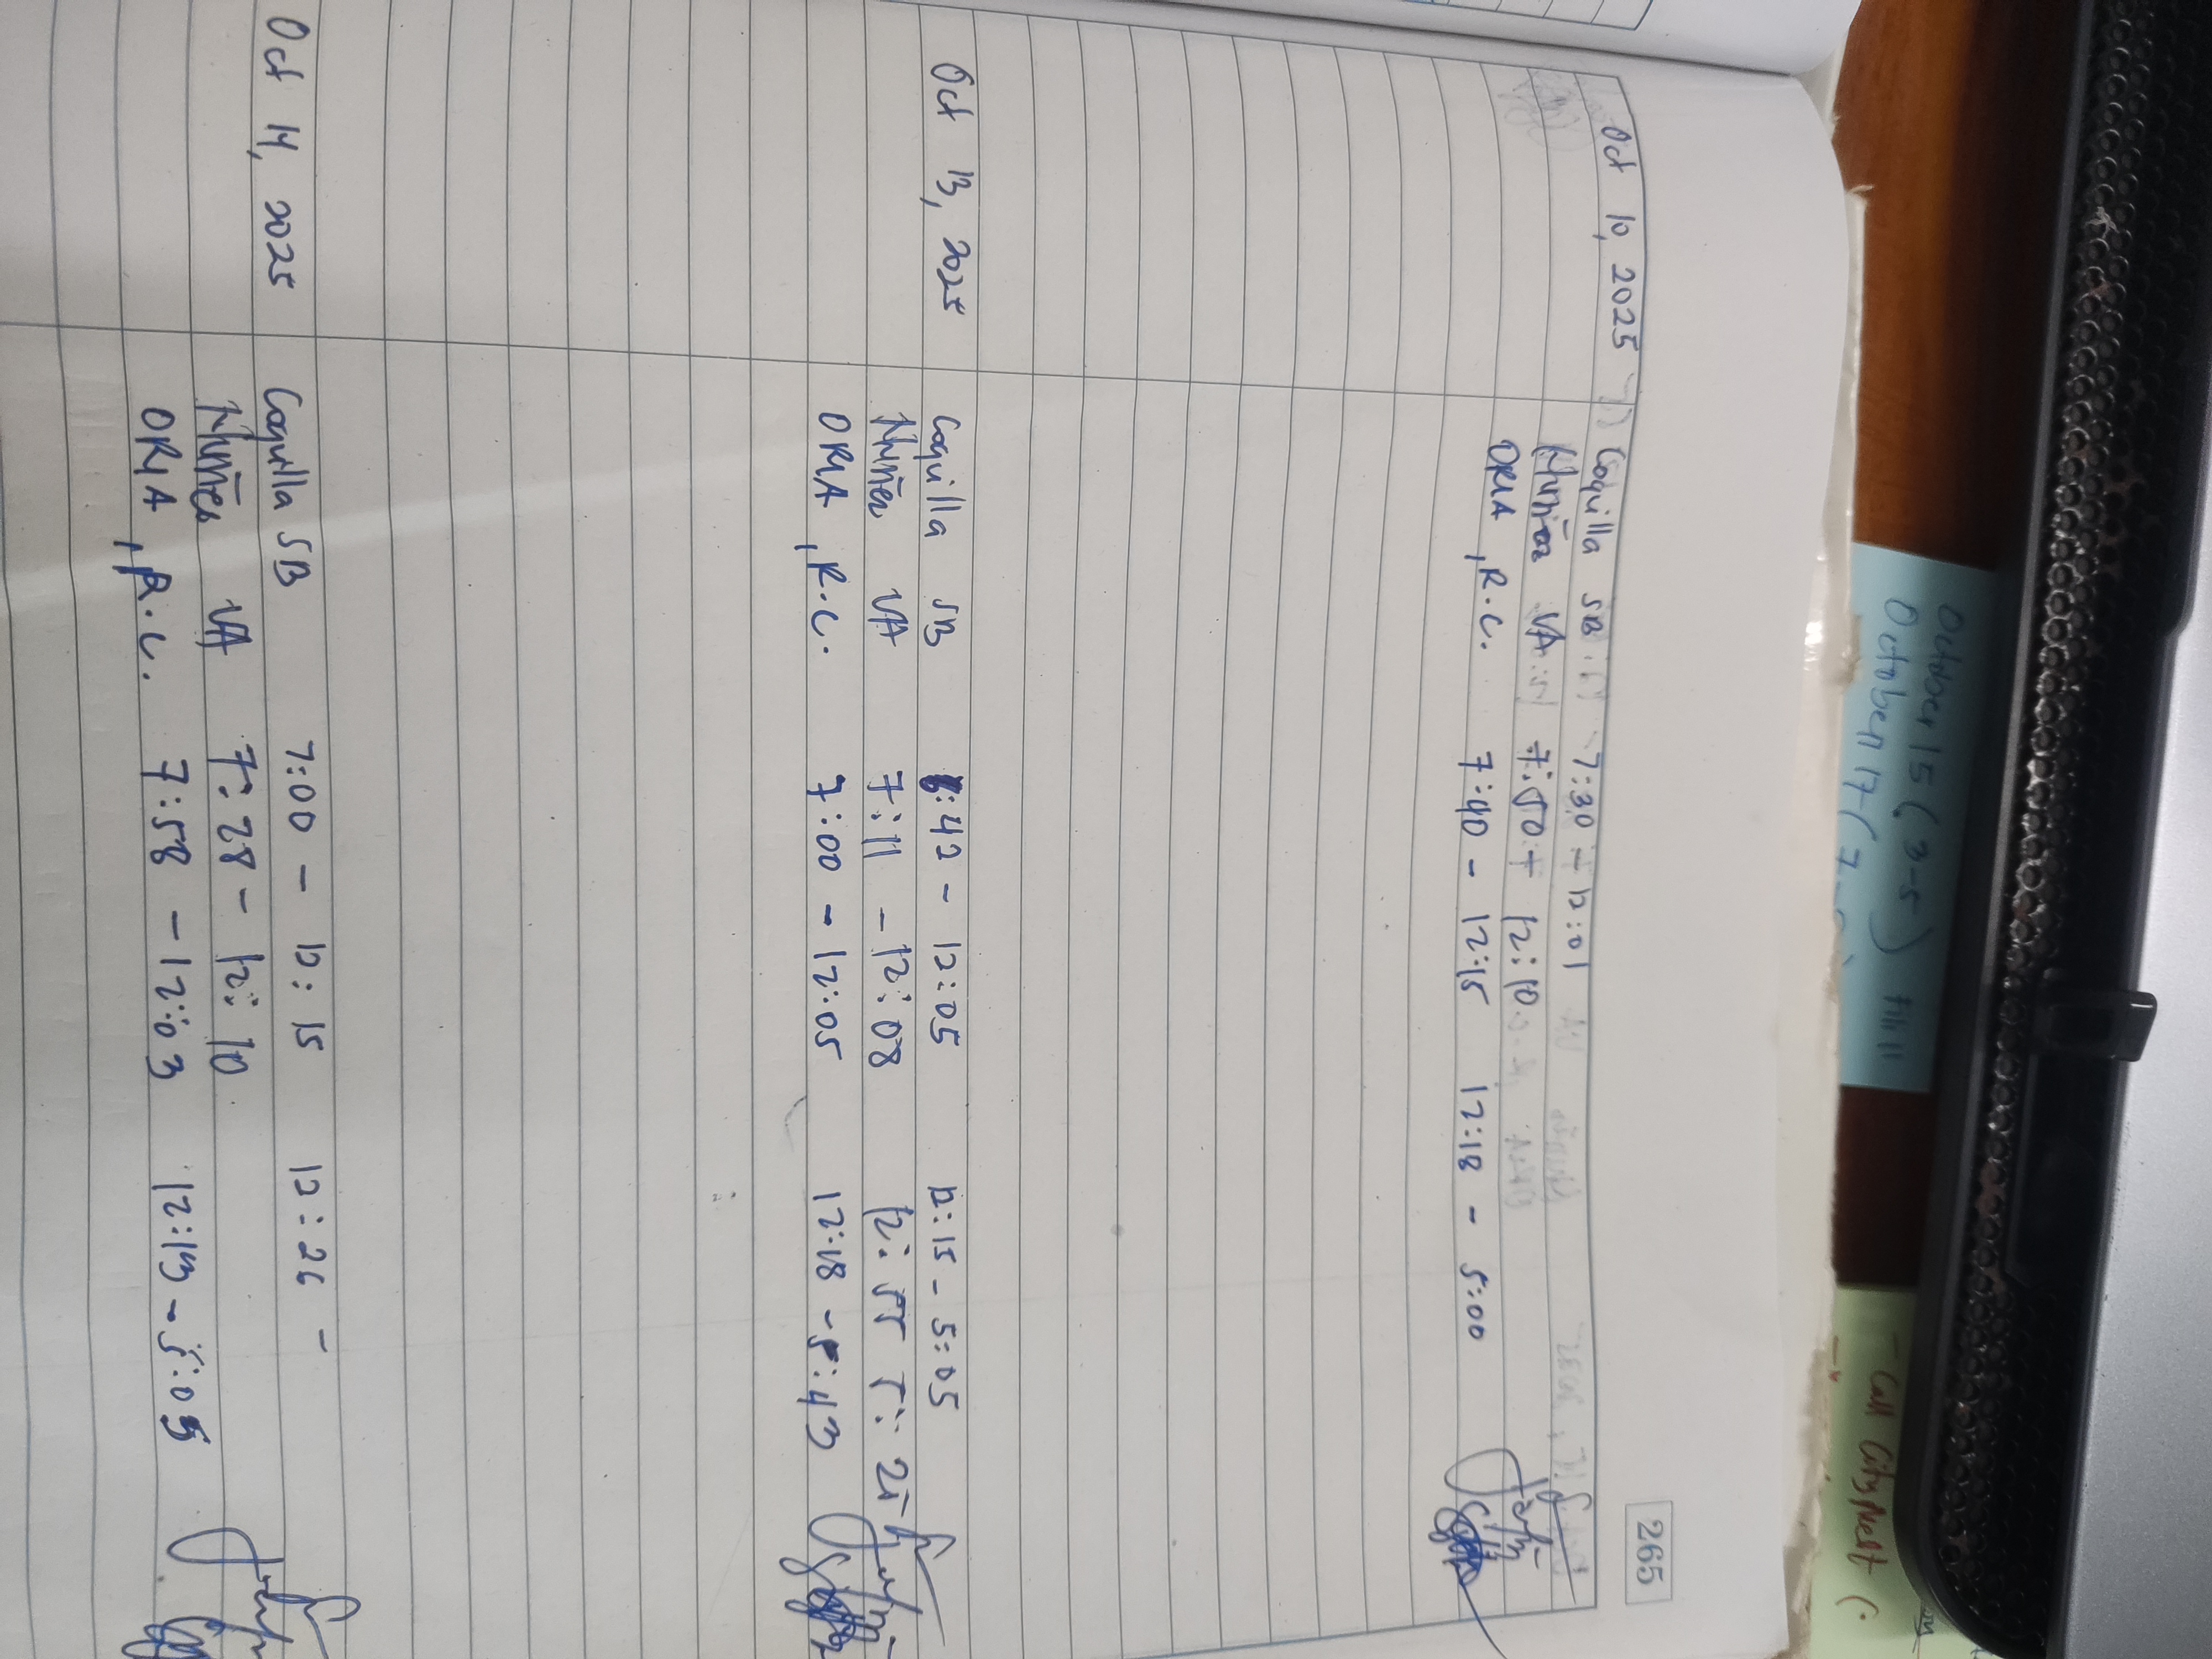 265
Oct 10, 2025 Coquilla SB 7:30 - 12:01
Nuñez VA 7:50 - 12:10
ORIA, R.C. 7:40 - 12:15 12:18 - 5:00
Oct 13, 2025 Coquilla SB 6:42 - 12:05 12:15 - 5:05
Nuñez VA 7:11 - 12:08 12:55 5:25
ORIA, R.C. 7:00 - 12:05 12:18 - 5:43
Oct 14, 2025 Coquilla SB 7:00 - 12:15 12:26 -
Nuñez VA 7:28 - 12:10
ORIA, R.C. 7:58 - 12:03 12:13 - 5:05
October 15 (3-5)
October 17 (7-
- Call Citynet (